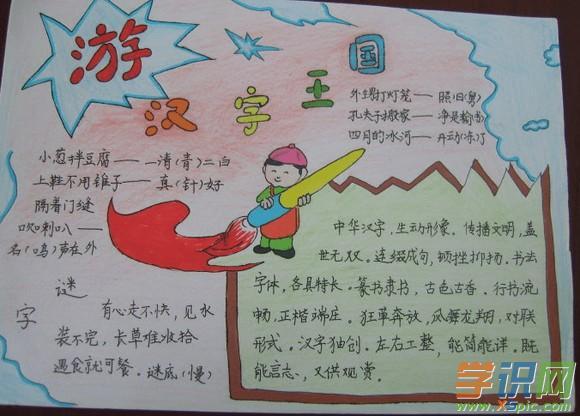 游
汉字王国
外甥打灯笼——照旧(舅)
孔夫子搬家——净是输(书)
四月的冰河——开动(冻)了
小葱拌豆腐——一清(青)二白
上鞋不用锥子——真(针)好
隔着门缝
吹喇叭——
名(鸣)声在外
字谜
有心走不快,见水
装不完,长草难收拾
遇食就可餐.谜底(慢)
中华汉字,生动形象.传播文明,盖
世无双.连缀成句,顿挫抑扬.书法
字体,各具特长.篆书隶书,古色古香.行书流
畅,正楷端庄.狂草奔放,凤舞龙翔,对联
形式.汉字独创.左右工整,能简能详.既
能言志,又供观赏.
学识网
www.XSpic.com